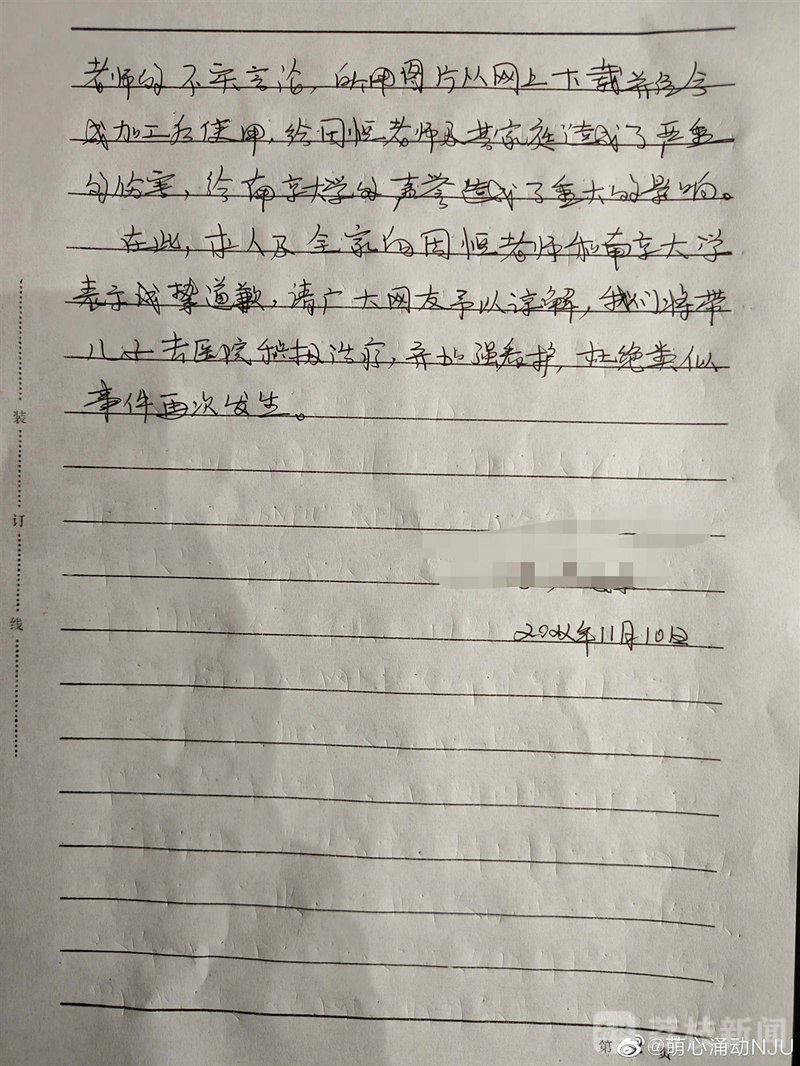 老师的不实言论，所用图片从网上下载并经合
成加工后使用，给周恒老师及其家庭造成了严重
的伤害，给南京大学的声誉造成了重大的影响。
在此，本人及全家向周恒老师和南京大学
表示诚挚道歉，请广大网友予以谅解，我们将带
儿子去医院积极治疗，并加强看护，杜绝类似
事件再次发生。
2021年11月10日
装
订
线
荔枝新闻
第 页
@萌心涌动NJU